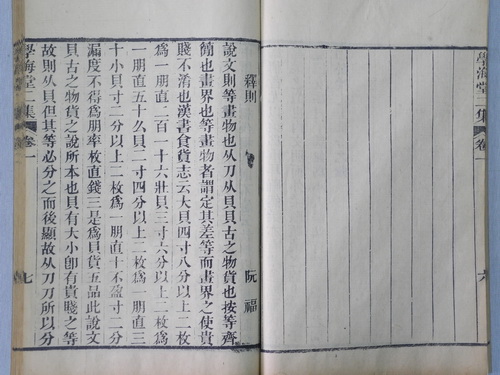 學海堂二集
卷一
六
釋則
阮福
說文則等畫物也从刀从貝貝古之物貨也按等齊
簡也畫界也等畫物者謂定其差等而畫界之使貴
賤不淆也漢書食貨志云大貝四寸八分以上二枚
爲一朋直二百一十六壯貝三寸六分以上二枚爲
一朋直五十幺貝二寸四分以上二枚爲一朋直三
十小貝寸二分以上二枚爲一朋直十不盈寸二分
漏度不得爲朋率枚直錢三是爲貝貨五品此說文
貝古之物貨之說所本也貝有大小卽有貴賤之等
故則从貝但其等必分之而後顯故从刀刀所以分
學海堂二集
卷一
七